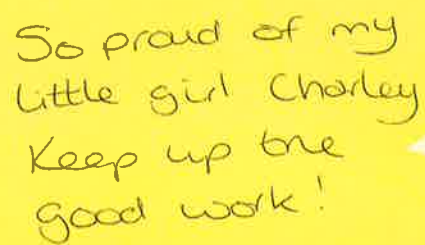 So proud of my
little girl Charley
Keep up the
good work!